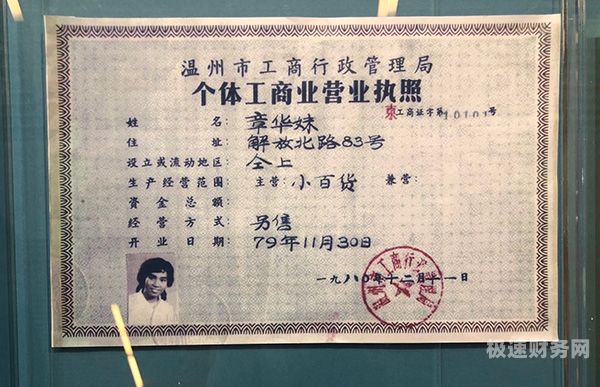 温州市工商行政管理局
个体工商业营业执照
东工商证字第10101号
姓名：章华妹
住址：解放北路83号
设立或流动地区：仝上
生产经营范围：主营：小百货 兼营：
资金总额：
经营方式：另售
开业日期：79年11月30日
一九八〇年十二月十一日
温州市工商行政管理局
极速财务网